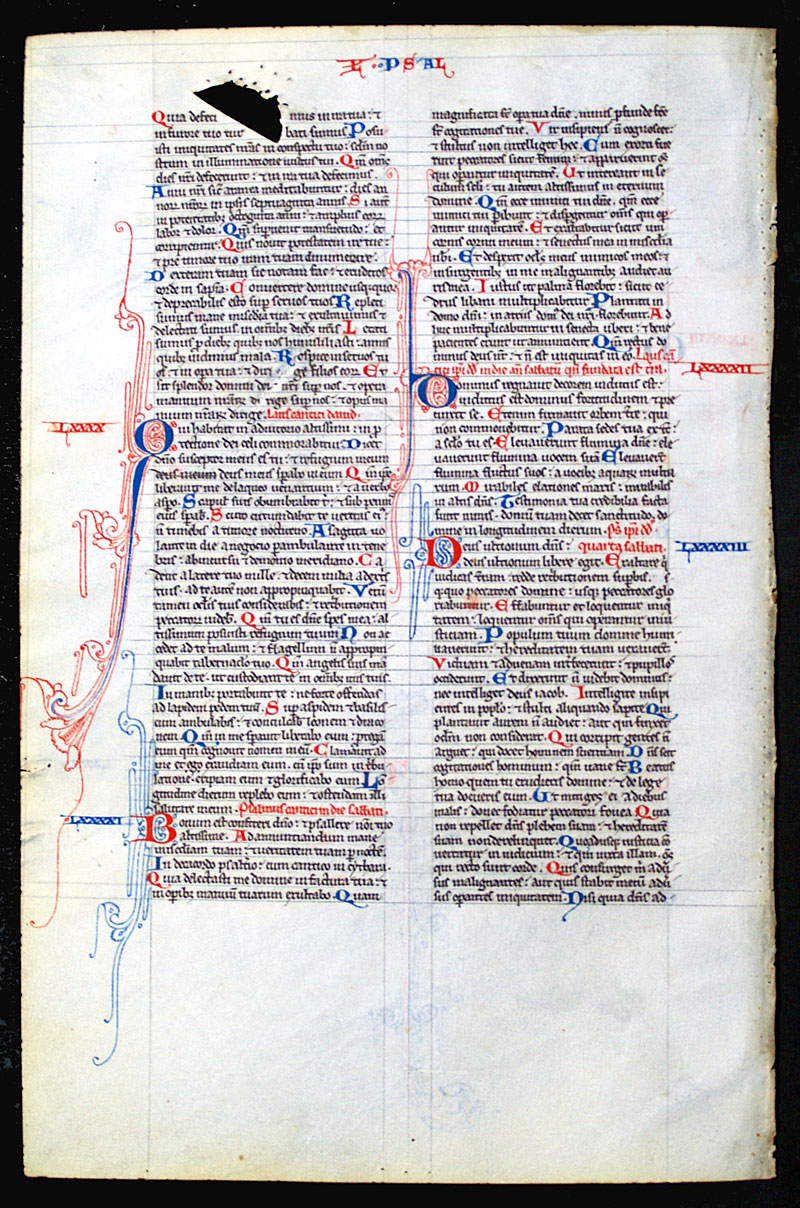 L PSAL
Quia defeci mus in ira tua: et
in furore tuo tur bati sumus. Posu
isti iniquitates nr̄as in conspectu tuo: sclm̄ no
strum in illuminatione uultus tui. Qm̄ om̄s
dies nr̄i defecerunt: et in ira tua defecimus.
Anni nr̄i sic̄ aranea meditabuntur: dies an
norꝝ nr̄orꝝ in ipsis septuaginta annis. Si aut̄
in potentatibꝫ octoginta anni: et amplius eorꝝ
labor et dolor. Qm̄ superuenit mansuetudo: et
corripiemur. Quis nouit potestatem ire tue:
et pre timore tuo iram tuam dinumerare.
Dexteram tuam sic notam fac: et eruditos
corde in sap̄ia. Conuertere domine usquequo
et deprecabilis esto sup̄ seruos tuos. Repleti
sumus mane misc̄dia tua: et exultauimus et
delectati sumus in omnibꝫ diebꝫ nr̄is. Letati
sumus ꝓ diebꝫ quibꝫ nos humiliasti: annis
quibꝫ uidimus mala. Respice in seruos tu
os et in opa tua: et diri ge filios eorꝝ. Et
sit splendor domini dei nr̄i sup̄ nos: et opera
manuum nr̄arꝝ dirige sup̄ nos: et opus ma
nuum nr̄arꝝ dirige. Laus cantici dauid.
LXXXX
Qui habitat in adiutorio altissimi: in ꝓ
tectione dei celi commorabitur. Dicet
dn̄o susceptor meus es tu: et refugium meum
deus meus deus meus sꝑabo in eum. Qm̄ ip̄e
liberauit me de laqueo uenantium: et a uerbo
asꝑo. Scapulis suis obumbrabit t̄: et sub pennis
eius sꝑab̄. Scuto circundabit te ueritas eiꝰ:
n̄ timebis a timore nocturno. A sagitta uo
lante in die a negocio perambulante in tene
bris: ab incursu et demonio meridiano. Ca
dent a latere tuo mille et decem milia a dextris
tuis: ad te autē non appropinquabit. Verūt
tamen oclīs tuis considerabis: et retributionem
peccatorꝝ uideb̄. Qm̄ tu es dn̄e spes mea: al
tissimum posuisti refugium tuum. Non ac
cedet ad te malum: et flagellum n̄ appropin
quabit tabernaclo tuo. Qm̄ angelis suis man
dauit de te: ut custodiant te in omībꝫ uiis tuis.
In manibꝫ portabunt te: ne forte offendas
ad lapidem pedem tuū. Sup̄ aspidem et basilis
cum ambulabis: et conculcab̄ leonem et draco
nem. Qm̄ in me sꝑauit liberabo eum: ꝓtegā
eum qm̄ cognouit nomen meū. Clamauit ad
me et ego exaudiam eum: cū ip̄o sum in tbu
latione eripiam eum et glorificabo eum. Lon
gitudine dierum replebo eum: et ostendam illi
salutare meum. Psalmus cantici in die sabbati.
LXXXXI
Bonum est confiteri dn̄o: et psallere noī tuo
altissime. Ad annuntiandum mane
misc̄diam tuam: et ueritatem tuam ꝑ noctē.
In decacordo psaltio: cum cantico in cythara.
Quia delectasti me domine in factura tua: et
in opibꝫ manuū tuarum exultabo. Quam
magnificata st̄ opa tua dn̄e: nimis ꝓfunde fc̄e
st̄ cogitationes tue. Vir insipiens n̄ cognoscet:
et stultus non intelliget hec. Cum exorti fue
rint peccatores sicut fenum: et apparuerint oēs
qui opantur iniquitatē. Ut intereant in sc̄
culum scl̄i: tu autem altissimus in eternum
domine. Qm̄ ecce inimici tui dn̄e: qm̄ ecce
inimici tui ꝑibunt: et disꝑgentur om̄s qui oꝑ
antur iniquitatē. Et exaltabitur sicut uni
cornis cornu meum: et senectus mea in misc̄dia
ubi. Et desꝑexit oclūs meus inimicos meos: et
insurgentibꝫ in me malignantibꝫ audiet au
ris mea. Iustus ut palma florebit: sicut ce
drus libani multiplicabitur. Plantati in
domo dn̄i: in atriis domꝰ dei nr̄i florebunt. Ad
huc multiplicabuntur in senecta uberi: et bene
patientes erunt ut annuntient. Qm̄ rectus do
minus deus nr̄: et n̄ est iniquitas in eo. Laus cn̄
tici ip̄i dd̄ in die an̄ sabbatū qn̄ fundata est tr̄a.
LXXXXII
Dominus regnauit decorem indutus est:
indutus est dominus fortitudinem et pre
cinxit se. Etenim firmauit orbem tr̄e: qui
non commouebitur. Parata sedes tua ex tc̄:
a sclo tu es. Eleuauerunt flumina dn̄e: ele
uauerunt flumina uocem suā. Eleuauerūt
flumina fluctus suos: a uocibꝫ aquarꝝ multa
rum. Mirabiles elationes maris: mirabilis
in altis dn̄s. Testimonia tua credibilia facta
sunt nimis: domū tuam decet sanctitudo do
mine in longitudinem dierum. Ps̄ ip̄i dd̄
quarta sabbati.
LXXXXIII
Deus ultionum dn̄s: 
deus ultionum libere egit. Exaltare q̄
iudicas tr̄am: redde retributionem supbis.
Usquequo peccatores domine: usqꝫ quo peccatores glo
riabuntur. Effabuntur et loquentur iniq̄
tatem: loquentur om̄s qui opantur iniu
sticiam. Populum tuum domine humi
liauerunt: et hereditatem tuam uexauerūt.
Viduam et aduenam intfecerunt: et pupillos
occiderunt. Et dixerunt n̄ uidebit dominus:
nec intelliget deus iacob. Intelligite insipi
entes in poplo: et stulti aliquando sapite. Qui
plantauit aurem n̄ audiet: aut qui finxit
oclm̄ non considerat. Qui corripit gentes n̄
arguet: qui docet hominem scientiam. Dn̄s scit
cogitationes hominum: qm̄ uane st̄. Beatus
homo quem tu erudieris domine: et de lege
tua docueris eum. Ut mitiges ei a diebus
malis: donec fodiatur peccatori fouea. Quia
non repellet dn̄s plebem suam: et hereditatē
suam non derelinquet. Quoadusqꝫ iusticia cō
uertatur in iudicium: et qui iuxta illam oēs
qui recto sunt corde. Quis consurget m̄ adūs
sus malignantes: aut quis stabit mecū adū
sus opantes iniquitatem. Nisi quia dn̄s ad